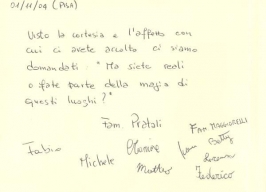 01/11/04 (PISA)
Visto la cortesia e l'affetto con
cui ci avete accolto ci siamo
domandati: "Ma siete reali
o fate parte della magia di
questi luoghi?"
Fam. Pratali
Fabio
Michele
Matteo
Federico